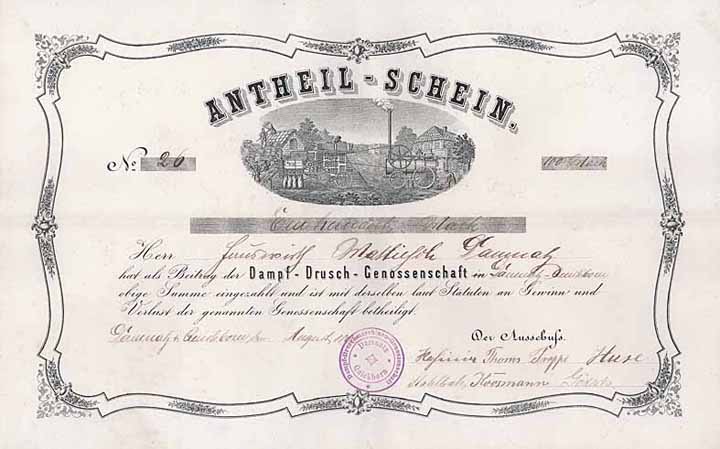 ANTHEIL-SCHEIN.
No. 26
100 Mark
Ein hundert Mark
Herr Hauswirth Damnatz
hat als Beitrag der Dampf-Drusch-Genossenschaft in Damnatz-Quickborn
obige Summe eingezahlt und ist mit derselben laut Statuten an Gewinn und
Verlust der genannten Genossenschaft betheiligt.
Damnatz & Quickborn, den August
Der Ausschufs.
Damnatz
Quickborn
Thoms Huse
Koosmann